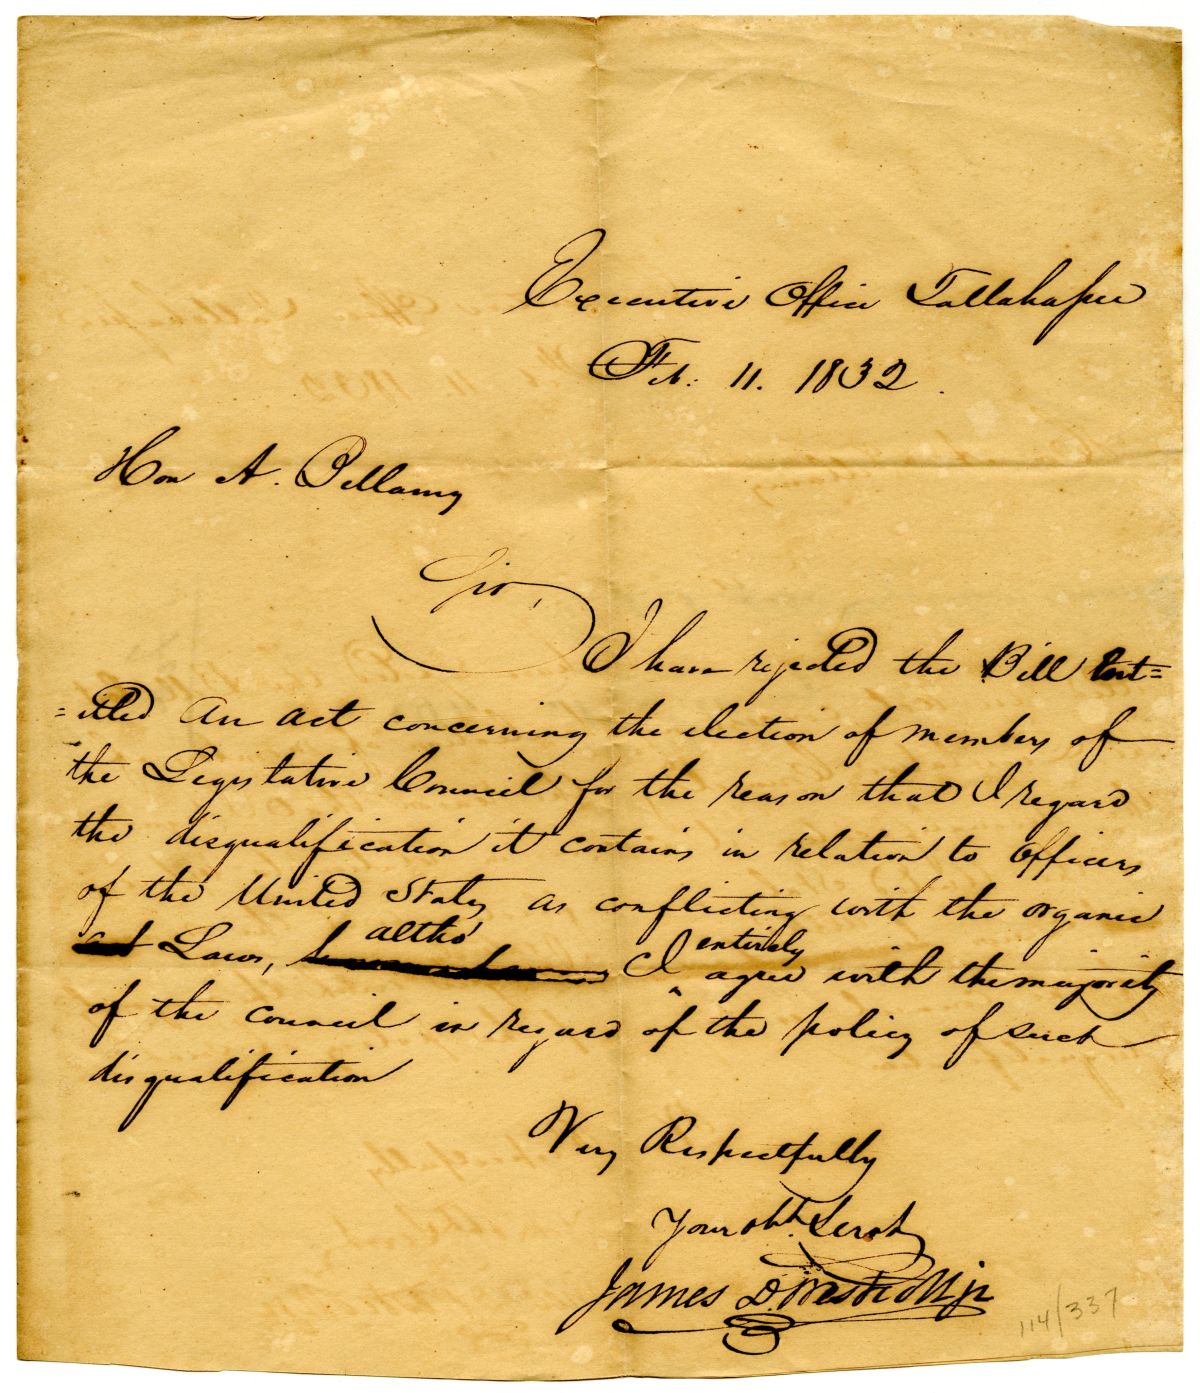 Executive Office Tallahassee
Feb: 11. 1832.
Hon A. Bellamy
Sir,
I have rejected the Bill Ent=
=itled An act concerning the election of members of
the Legislative Council for the reason that I regard
the disqualification it contains in relation to Officers
of the United States as conflicting with the organic
altho' entirely
Laws, I ‸ agree with the majority
of the council in regard of the policy of such
disqualification
Very Respectfully
Your obt. Servt
James D. Westcott jr
114/337